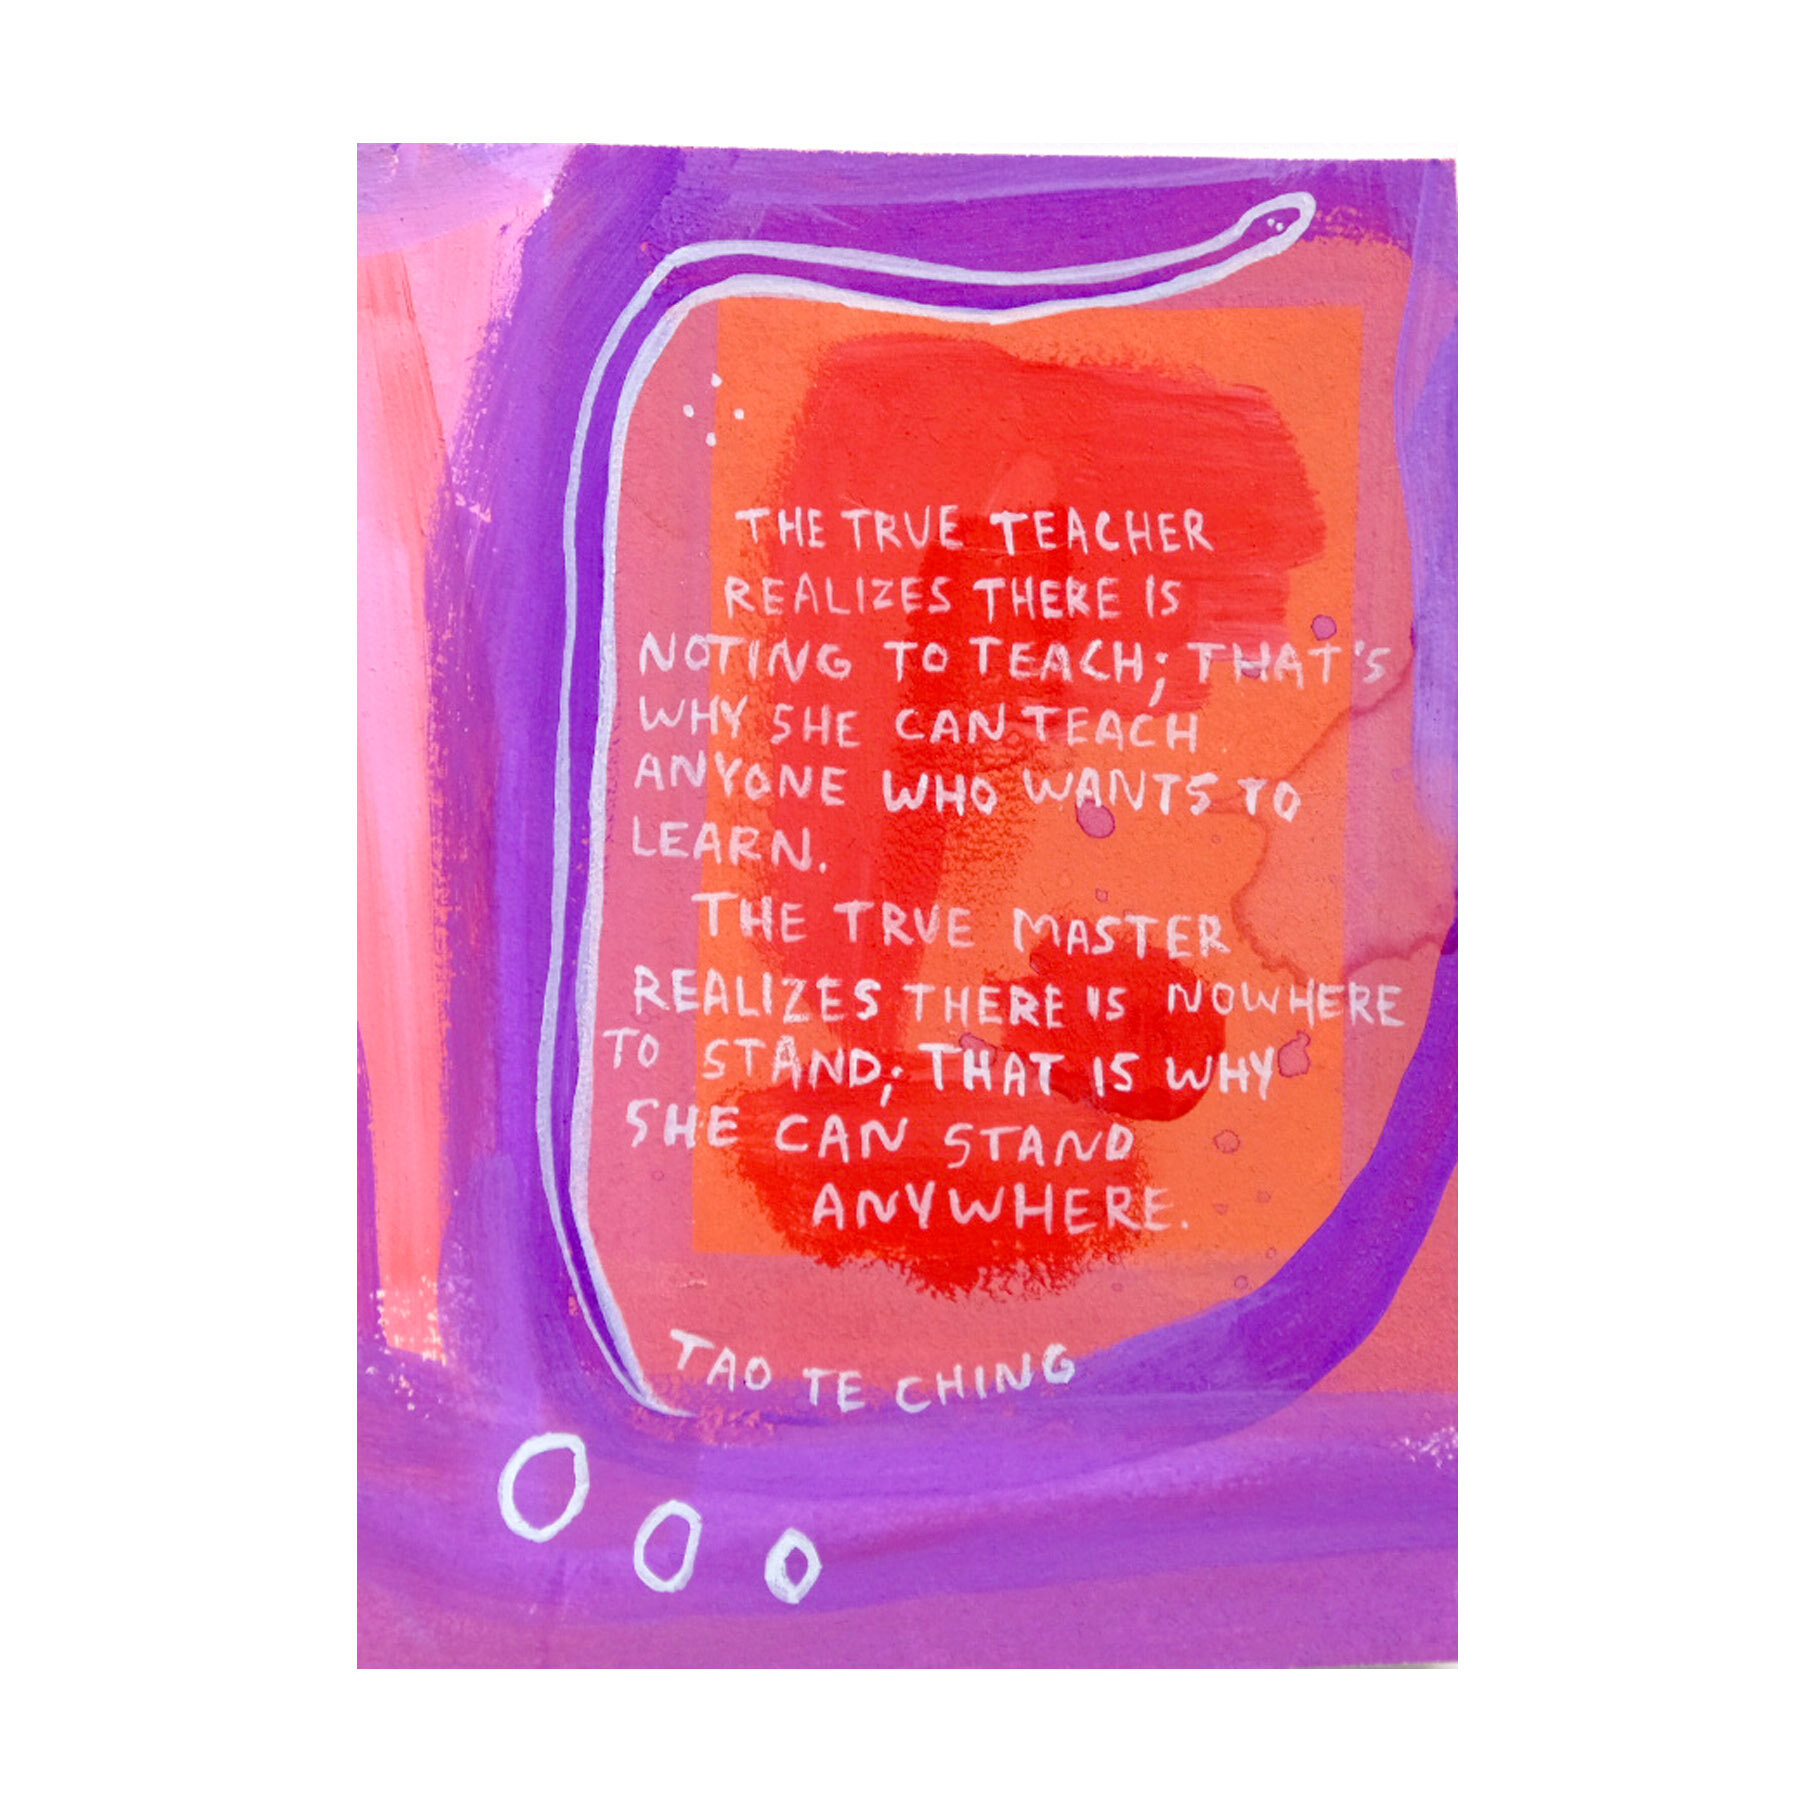 THE TRUE TEACHER
REALIZES THERE IS
NOTING TO TEACH; THAT'S
WHY SHE CAN TEACH
ANYONE WHO WANTS TO
LEARN.
THE TRUE MASTER
REALIZES THERE IS NOWHERE
TO STAND; THAT IS WHY
SHE CAN STAND
ANYWHERE.
TAO TE CHING